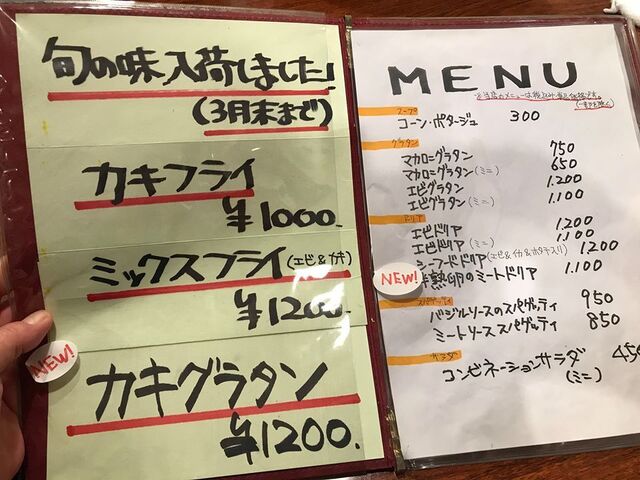 旬の味入荷しました!
(3月末まで)
カキフライ
¥1000.
ミックスフライ(エビ&カキ)
¥1200.
NEW!
カキグラタン
¥1200.
MENU
スープ
コーン・ポタージュ 300
グラタン
マカロニグラタン 750
マカロニグラタン(ミニ) 650
エビグラタン 1.200
エビグラタン(ミニ) 1.100
ドリア
エビドリア 1.200
エビドリア(ミニ) 1.100
シーフードドリア(エビ&イカ&ホタテ入り) 1.200
NEW!
半熟卵のミートドリア 1.100
スパゲッティ
バジルソースのスパゲッティ 950
ミートソーススパゲッティ 850
サラダ
コンビネーションサラダ 450
(ミニ)